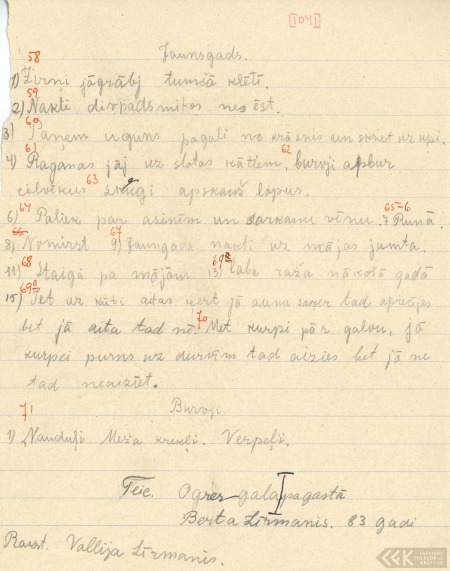 [104]
58
Jaunsgads.
1) Zirņi jāgrābj tumšā klētī.
59
2) Nakti divpadsmitos nes ēst.
60
3) Paņem uguns pagali no krāsnis un skret uz upi.
61 62
4) Raganas jāj uz slotas kātiem, burvji apbur
63
cilvēkus apskauž lopus.
64 65-6
6) Paliek par asinīm un sarkanu vīnu. 7 Runā.
66 67
8) Nomirst 9) Jaungada naktī uz mājas jumta.
68 69
11) Staigā pa mājām 13) laba raža nākošā gadā
69a
15) Iet uz kūti aitas ķert jā aunu saķer tad aprecējas
70
bet jā aita tad nē. Met kurpi pār galvu, jā
kurpei purns uz durvīm tad aizies bet jā ne
tad neaiziet.
71
Burvji
1) Nauduļi Meža krekļi. Verpeļi.
Teic. Ogres galapagastā
Berta Sīrmanis. 83 gadi
Rakst. Vallija Sīrmanis.
LATVIEŠU
FOLKLORAS
KRĀTUVE